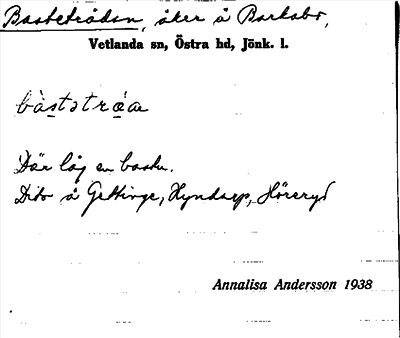 Bastetrådan, åker å Barkabo,
Vetlanda sn, Östra hd, Jönk. l.
bàstətrá̱æ
Där låg en bastu.
Dito å Gettinge, Hyndarp, Höreryd
Annalisa Andersson 1938